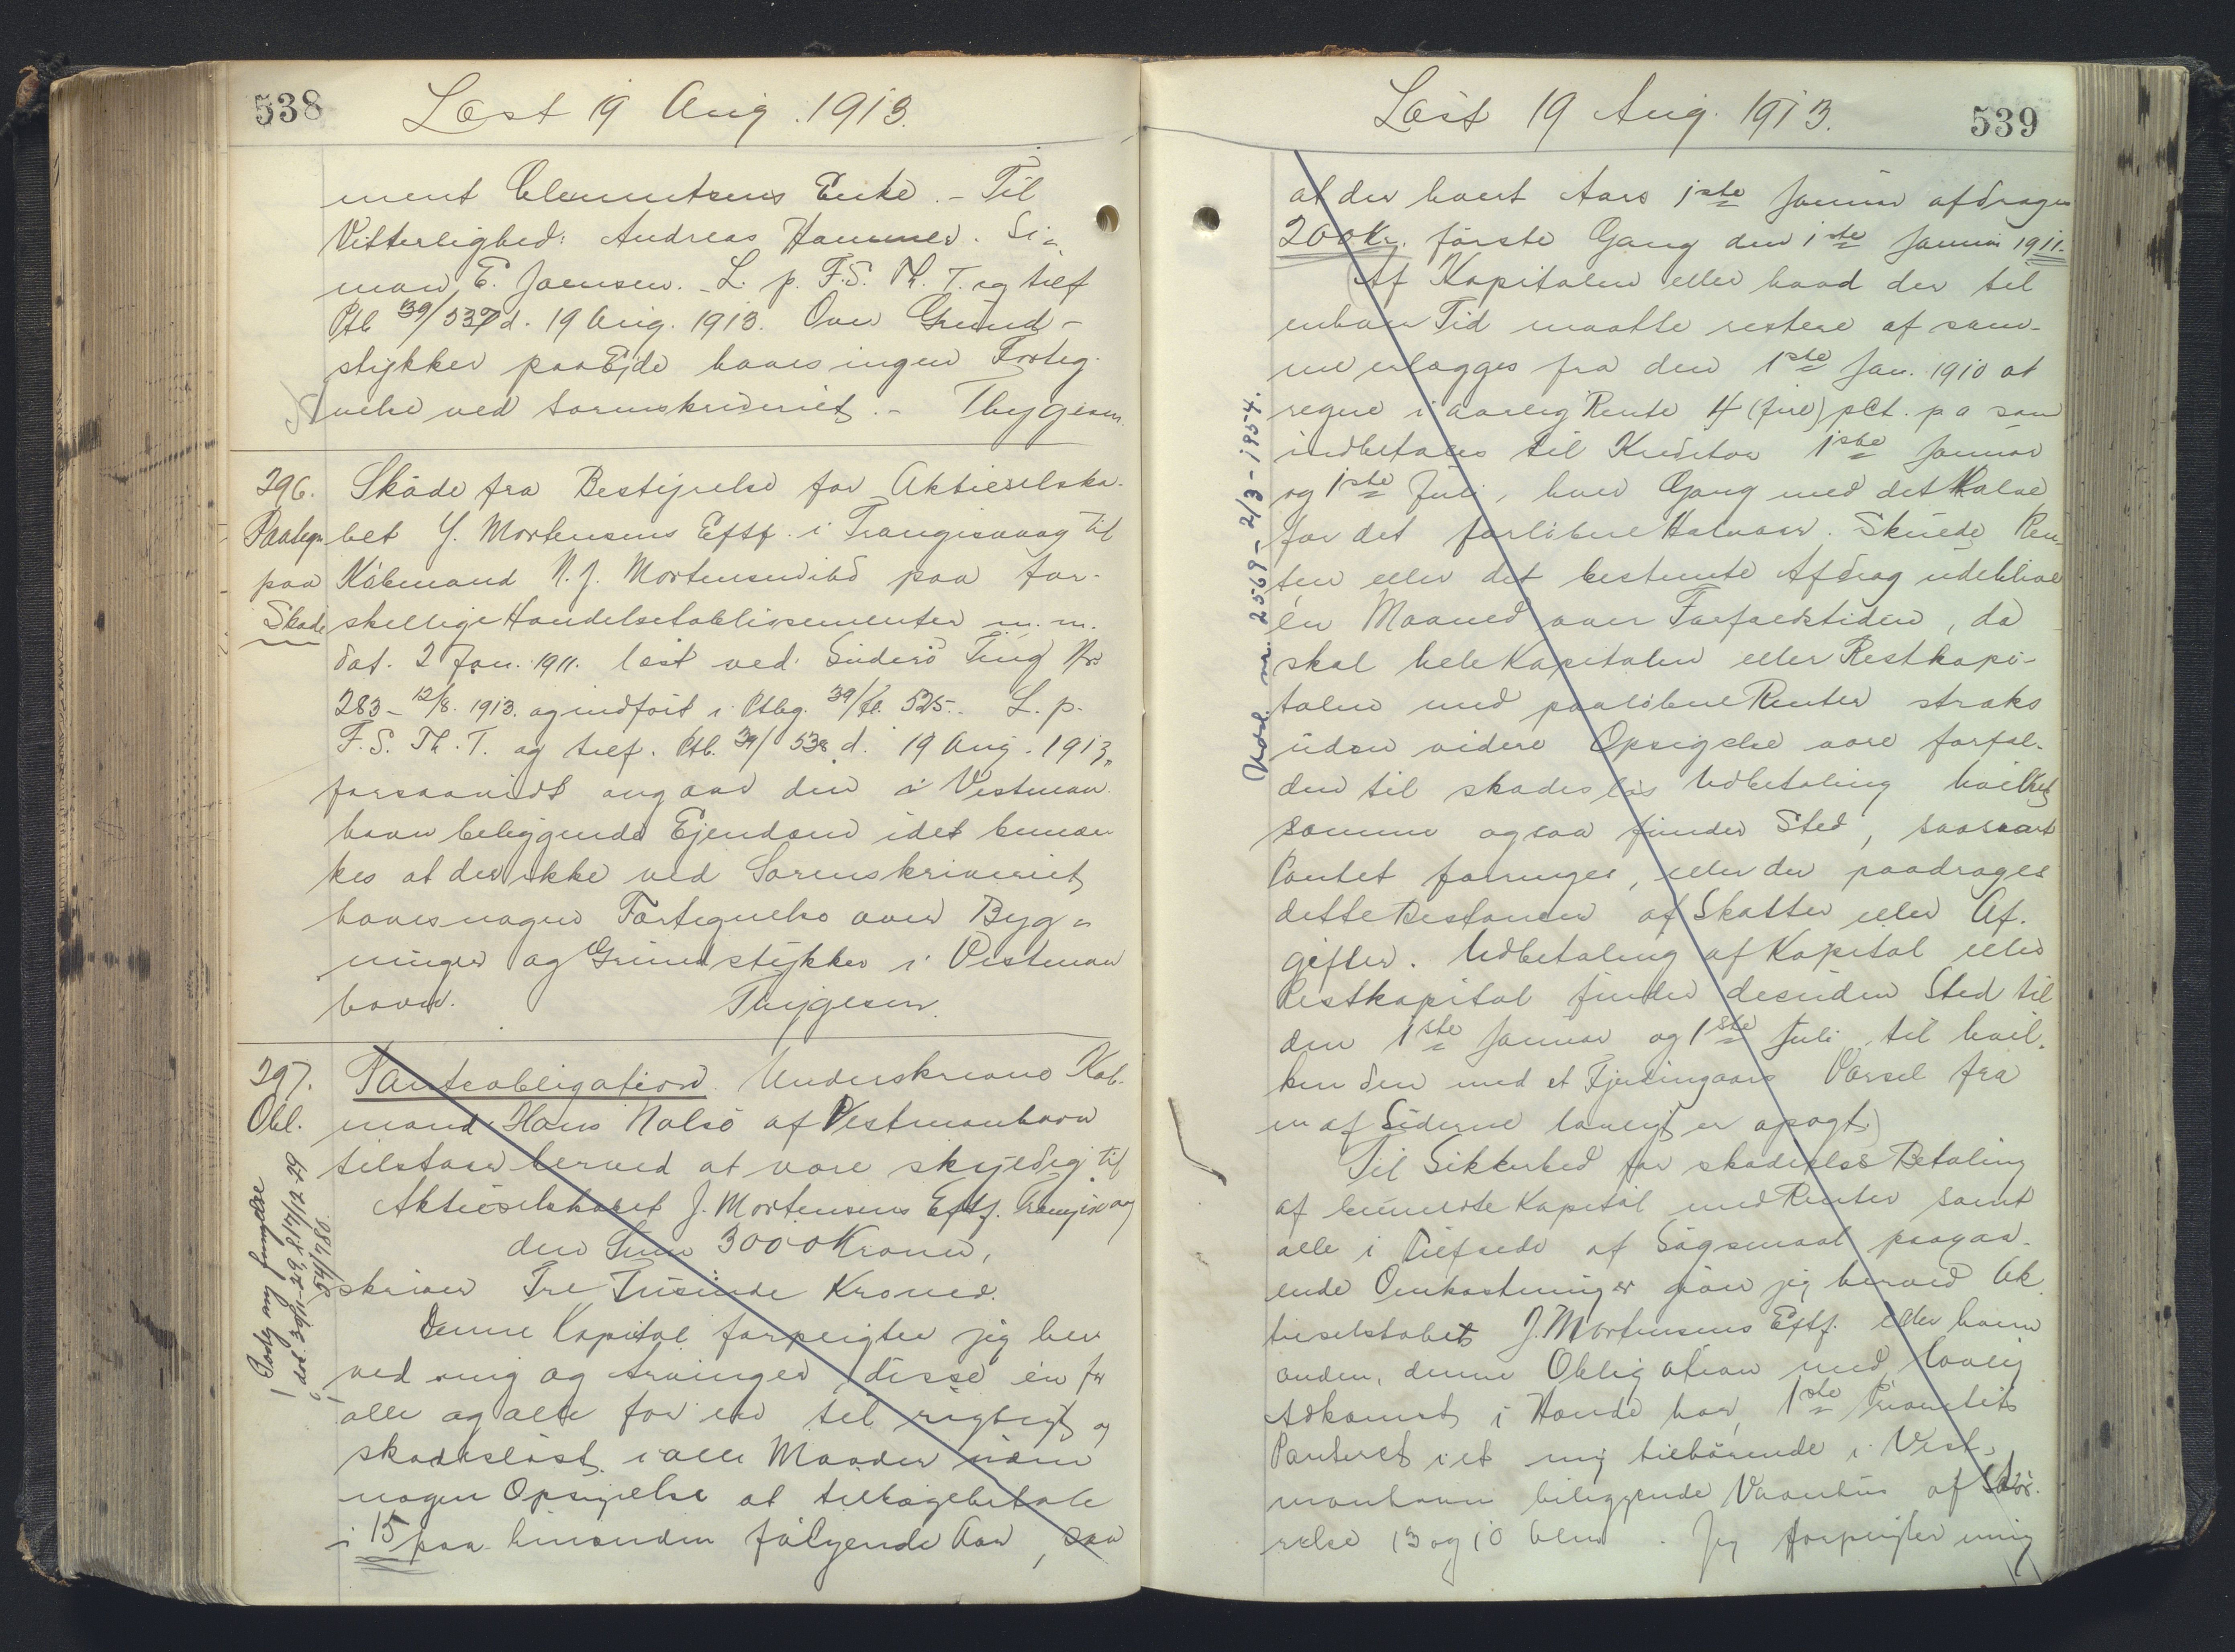 538
Læst 19 Aug. 1913.
ment Clementsens Enke. - Til
Vitterlighed: Andreas Hammer. Si-
mon E. Joensen. - L. p. F.S. Th. T. og tilf
Ptb 39/537 d. 19 Aug. 1913. Over Grund-
stykker paa Ejde haves ingen Forteg-
nelse ved Sorenskriveriet. - Thygesen.
296. Skøde fra Bestyrelse for Aktieselska-
Paategn. bet J. Mortensens Eftf. i Trangisvaag til
paa Købmand N. J. Mortensen ibd paa for-
Skøde skellige Handelsetablissementer m. m.
dat. 2 Jan. 1911. læst ved Suderø Ting Nr.
283 - 12/8. 1913. og indført i Ptbg. 39/fl. 525. L. p.
F. S. Th. T. og tilf. Ptb. 39/538 d. 19 Aug. 1913,
forsaavidt angaar den i Vestman-
havn beliggende Ejendom idet bemær-
kes at der ikke ved Sorenskriveriet
haves nogen Fortegnelse over Byg-
ninger og Grundstykker i Vestman
havn. Thygesen.
297. Panteobligation. Underskrevne Køb-
Obl. mand Hans Nolsö af Vestmanhavn
tilstaar herved at være skyldig til
Aktieselskabet J. Mortensens Eftf. Trangisvaag
den Sum 3000 Kroner,
skriver Tre Tusinde Kroner.
Denne Kapital forpligter jeg her-
ved mig og Arvinger disse én for
alle og alle for en til rigtigt og
skadesløst i alle Maader uden
nogen Opsigelse at tilbagebetale
i 15 paa hinanden følgende Aar, saa
539
Læst 19 Aug. 1913.
Udsl. nr. 2569 - 2/3 - 1954.
at der hvert Aars 1ste Januar afdrages
200 Kr. første Gang den 1ste Januar 1911.
Af Kapitalen eller hvad der til
enhver Tid maatte restere af sam-
me erlægges fra den 1ste Jan. 1910 at
regne i aarlig Rente 4 (fire) pCt. p a som
indbetales til Kreditor 1ste Januar
og 1ste Juli, hver Gang med det Halve
for det forløbne Halvaar. Skulde Ren-
ten eller det bestemte Afdrag udeblive
én Maaned over Forfaldstiden, da
skal hele Kapitalen eller Restkapi-
talen med paaløbne Renter straks
uden videre Opsigelse være forfal-
den til skadesløs Udbetaling hvilket
samme ogsaa finder Sted, saasnart
Pantet forringes, eller der paadrages
dette Restancer af Skatter eller Af-
gifter. Udbetaling af Kapital eller
Restkapital finder desuden Sted til
den 1ste Januar og 1ste Juli til hvil-
ken den med et Fjerdingaars Varsel fra
en af Siderne lovligt er opsagt.
Til Sikkerhed for skadesløs Betaling
af bemeldte Kapital med Renter samt
alle i Tilfælde af Søgsmaal paagaa-
ende Omkostninger giver jeg herved Ak
tieselskabet J. Mortensens Eftf. eller hvem
anden, denne Obligation med lovlig
Adkomst i Hænde har, 1ste Prioritets
Panteret i et mig tilhørende i Vest-
manhavn beliggende Vaanhus af Stør-
relse 13 og 10 Alen. Jeg forpligter mig